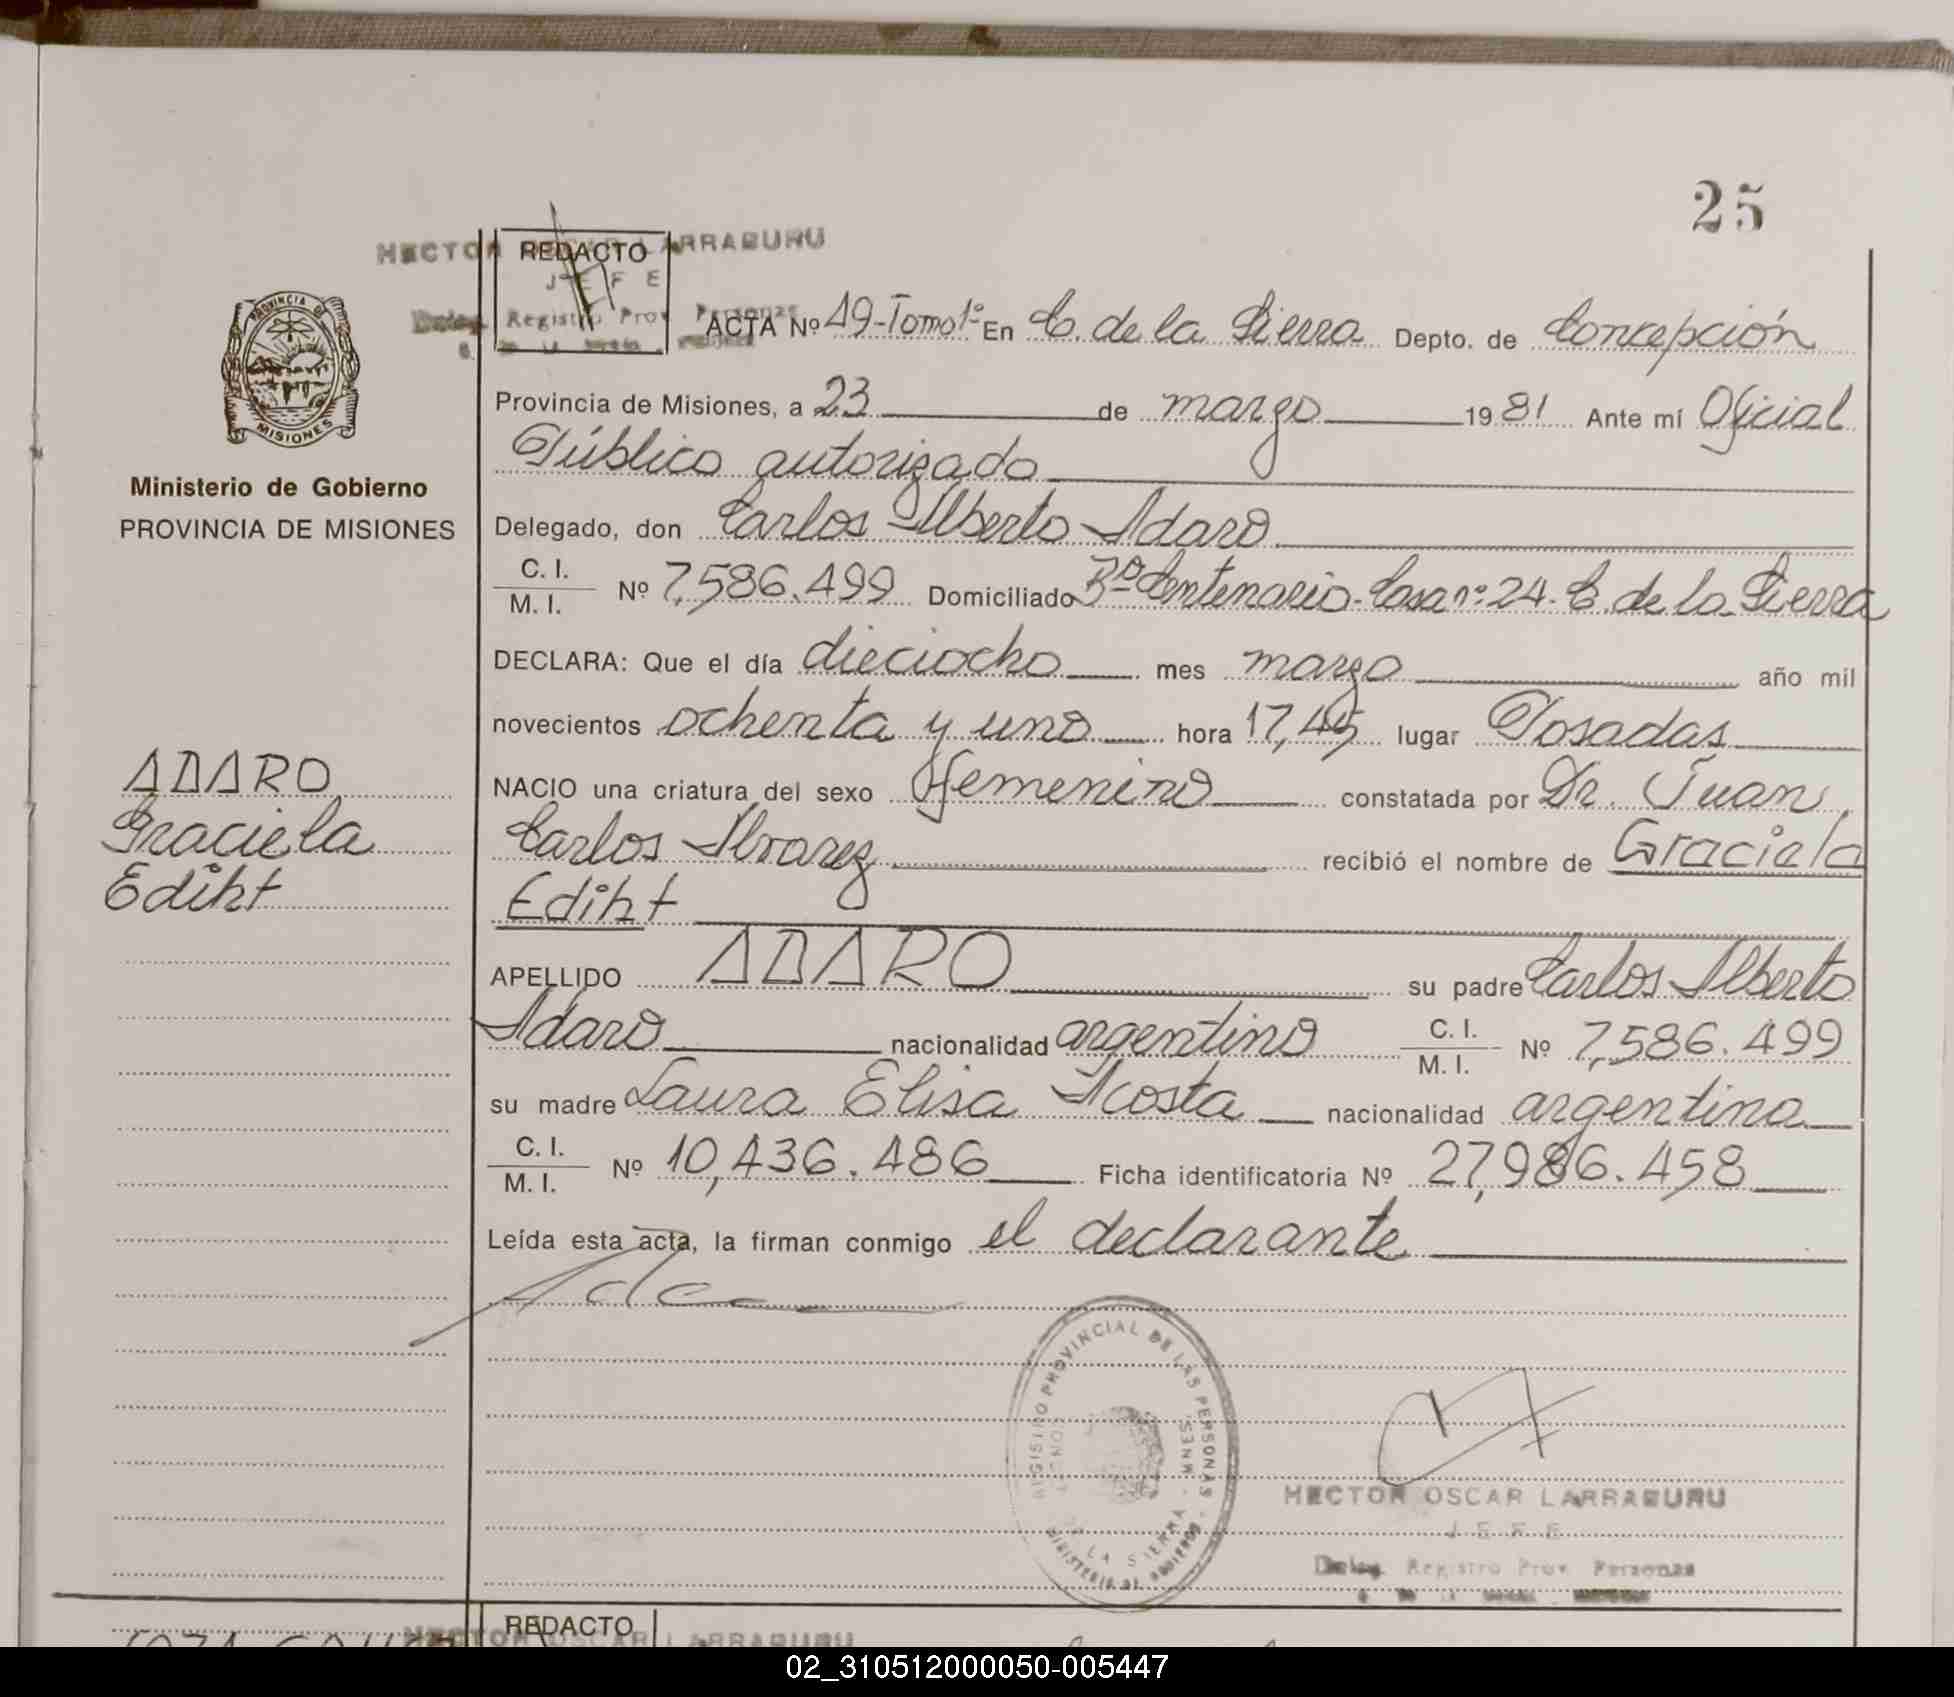 25
HECTOR OSCAR LARRABURU
REDACTO
JEFE
Deleg. Registro Prov. Personas
PROVINCIA DE
MISIONES
Ministerio de Gobierno
PROVINCIA DE MISIONES
ADARO
Graciela
Ediht
ACTA Nº 49-Tomo 1º En C. de la Sierra Depto. de Concepción
Provincia de Misiones, a 23 de marzo 1981 Ante mí Oficial
Público autorizado
Delegado, don Carlos Alberto Adaro
C. I. / M. I. Nº 7,586.499 Domiciliado 3º Centenario-Casa nº 24-C. de la Sierra
DECLARA: Que el día dieciocho mes marzo año mil
novecientos ochenta y uno hora 17,45 lugar Posadas
NACIO una criatura del sexo femenino constatada por Dr. Juan
Carlos Alvarez recibió el nombre de Graciela
Ediht
APELLIDO ADARO su padre Carlos Alberto
Adaro nacionalidad argentino C. I. / M. I. Nº 7,586.499
su madre Laura Elisa Acosta nacionalidad argentina
C. I. / M. I. Nº 10,436.486 Ficha identificatoria Nº 27,986.458
Leída esta acta, la firman conmigo el declarante
REGISTRO PROVINCIAL DE LAS PERSONAS - MINISTERIO DE GOBIERNO
LA SIERRA - MNES.
HECTOR OSCAR LARRABURU
JEFE
Deleg. Registro Prov. Personas
REDACTO
HECTOR OSCAR LARRABURU
02_310512000050-005447